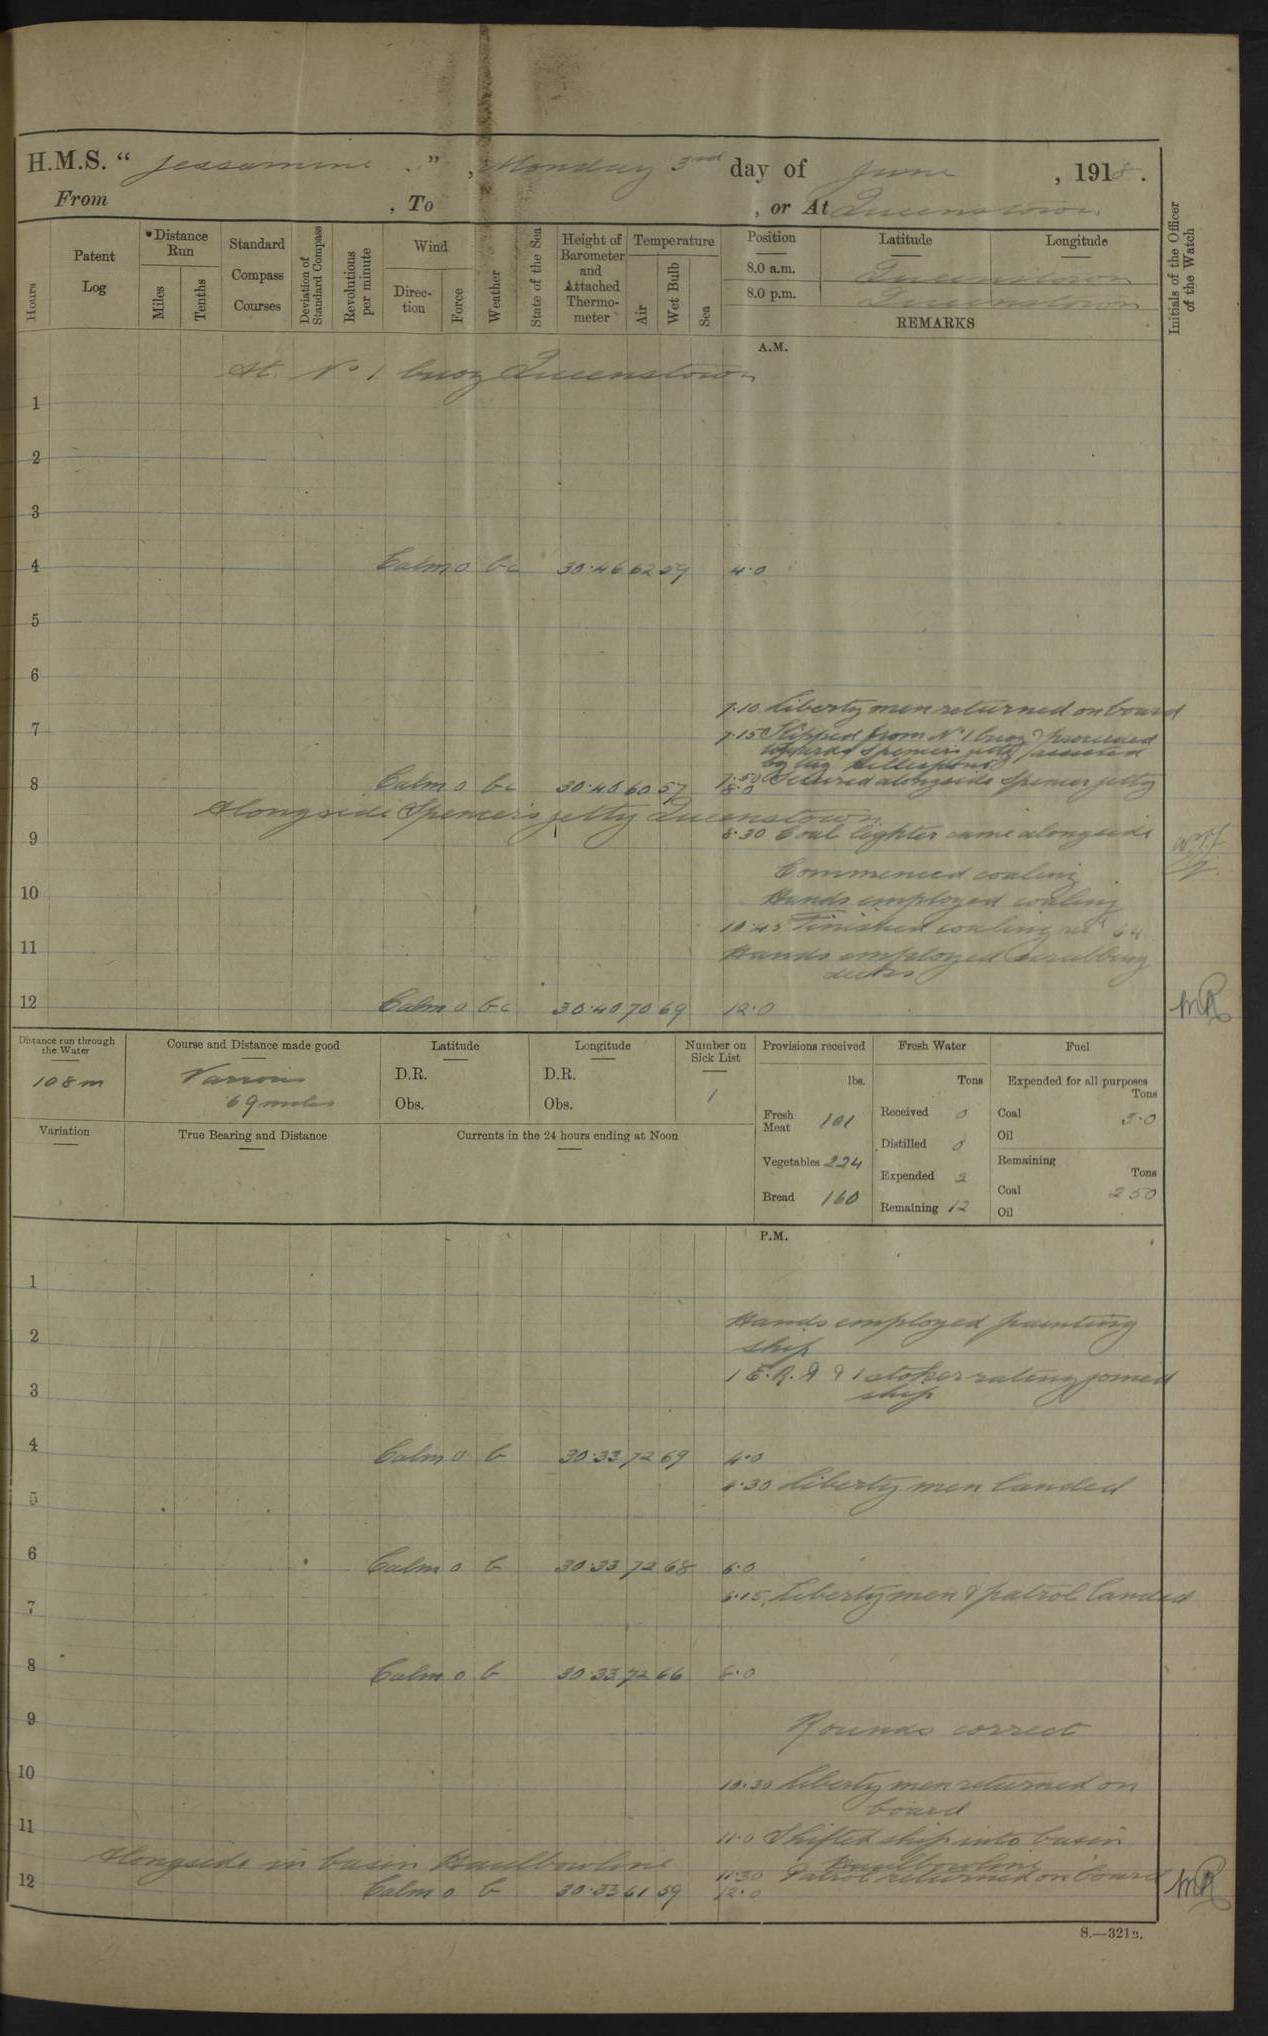 H.M.S. “ Jessamine . ” , Monday 3rd day of June , 1918.
From , To , or At Queenstown
Hours
Patent Log
*Distance Run
Miles
Tenths
Standard Compass Courses
Deviation of Standard Compass
Revolutions per minute
Wind
Direc-tion
Force
Weather
State of the Sea
Height of Barometer and Attached Thermo-meter
Temperature
Air
Wet Bulb
Sea
Position
Latitude
Longitude
8.0 a.m. Queenstown
8.0 p.m. Queenstown
REMARKS
Initials of the Officer of the Watch
A.M.
At No 1 buoy Queenstown
1
2
3
4 Calm 0 bc 30.46 62 59 4.0
5
6
7.10 Liberty men returned on board
7
7.15 Slipped from No 1 buoy & proceeded
towards Spencers jetty assisted
by tug Hellespont
7.50 Secured alongside Spencer jetty
8 Calm 0 bc 30.40 60 57 8.0
Alongside Spencer's jetty Queenstown
8.30 Coal lighter came alongside
9
Commenced coaling
10 Hands employed coaling
10.45 Finished coaling recd 64
11 Hands employed scrubbing
decks
12 Calm 0 bc 30.40 70 69 12.0 MR
Distance run through the Water
108 m
Course and Distance made good
Various
69 miles
Latitude
D.R.
Obs.
Longitude
D.R.
Obs.
Number on Sick List
1
Variation
True Bearing and Distance
Currents in the 24 hours ending at Noon
Provisions received
lbs.
Fresh Meat 101
Vegetables 224
Bread 160
Fresh Water
Tons
Received 0
Distilled 0
Expended 2
Remaining 12
Fuel
Expended for all purposes
Tons
Coal 30
Oil
Remaining
Tons
Coal 250
Oil
P.M.
1
Hands employed painting
2 ship
1 E.R.A & 1 stoker rating joined
3 ship
4 Calm 0 b 30.33 72 69 4.0
4.30 Liberty men landed
5
6 Calm 0 b 30.33 72 68 6.0
6.15 Liberty men & patrol landed
7
8 Calm 0 b 30.33 72 66 8.0
9 Rounds correct
10 10.30 Liberty men returned on
board
11 11.0 Shifted ship into basin
Haulbowline
Alongside in basin Haulbowline
11.30 Patrol returned on board
12 Calm 0 b 30.33 61 59 12.0 MR
S.—321B.